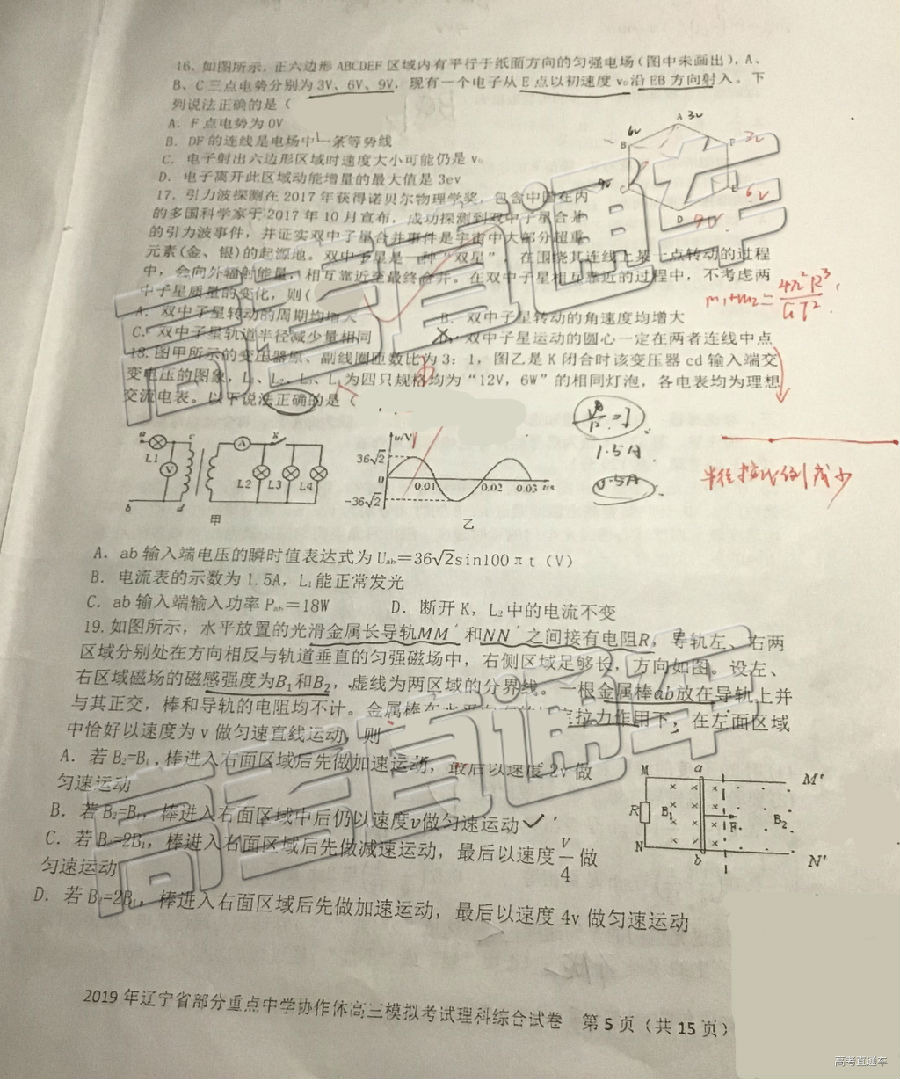 16、如图所示,正六边形 ABCDEF 区域内有平行于纸面方向的匀强电场(图中未画出),A、
B、C三点电势分别为3V、6V、9V,现有一个电子从E点以初速度 v₀沿EB方向射入。下
列说法正确的是(
A. F 点电势为 0V
B. DF的连线是电场中一条等势线
C. 电子射出六边形区域时速度大小可能仍是 v₀
D. 电子离开此区域动能增量的最大值是 3ev
17. 引力波探测在 2017 年获得诺贝尔物理学奖,包含中国在内
的多国科学家于 2017 年 10 月宣布,成功探测到双中子星合并
的引力波事件,并证实双中子星合并事件是宇宙中大部分超重
元素(金、银)的起源地。双中子星是一种“双星”,在围绕其连线上某一点转动的过程
中,会向外辐射能量,相互靠近至最终合并。在双中子星相互靠近的过程中,不考虑两
中子星质量的变化,则(
A. 双中子星转动的周期均增大
B. 双中子星转动的角速度均增大
C. 双中子星轨道半径减少量相同
双中子星运动的圆心一定在两者连线中点
18. 图甲所示的变压器原、副线圈匝数比为 3:1,图乙是 K 闭合时该变压器 cd 输入端交
变电压的图象,L₁、L₂、L₃、L₄为四只规格均为“12V,6W”的相同灯泡,各电表均为理想
交流电表。以下说法正确的是(
a c A K
L1 V L2 L3 L4
b d
甲
u/V
36√2
0 0.01 0.02 0.03 t/s
-36√2
乙
A. ab 输入端电压的瞬时值表达式为 Uab=36√2sin100πt(V)
B. 电流表的示数为 1.5A,L₁能正常发光
C. ab 输入端输入功率 Pab=18W
D. 断开 K,L₂中的电流不变
19. 如图所示,水平放置的光滑金属长导轨MM′和NN′之间接有电阻R,导轨左、右两
区域分别处在方向相反与轨道垂直的匀强磁场中,右侧区域足够长,方向如图。设左、
右区域磁场的磁感强度为B₁和B₂,虚线为两区域的分界线。一根金属棒ab放在导轨上并
与其正交,棒和导轨的电阻均不计。金属棒在水平向右的恒定拉力作用下,在左面区域
中恰好以速度为 v 做匀速直线运动,则
A. 若 B₂=B₁,棒进入右面区域后先做加速运动,最后以速度 2v 做
匀速运动
B. 若B₂=B₁,棒进入右面区域中后仍以速度v做匀速运动
C. 若 B₂=2B₁,棒进入右面区域后先做减速运动,最后以速度v/4做
匀速运动
D. 若 B₂=2B₁,棒进入右面区域后先做加速运动,最后以速度 4v 做匀速运动
M a M′
R B₁ F B₂
N b N′
A 3V
6V B F 3V
C E 6V
D 9V
m₁+m₂=4π²R³/GT²
1.5A
0.5A
半径按比例减少
2019 年辽宁省部分重点中学协作体高三模拟考试理科综合试卷 第 5 页(共 15 页)
高考直通车
高考直通车
高考直通车